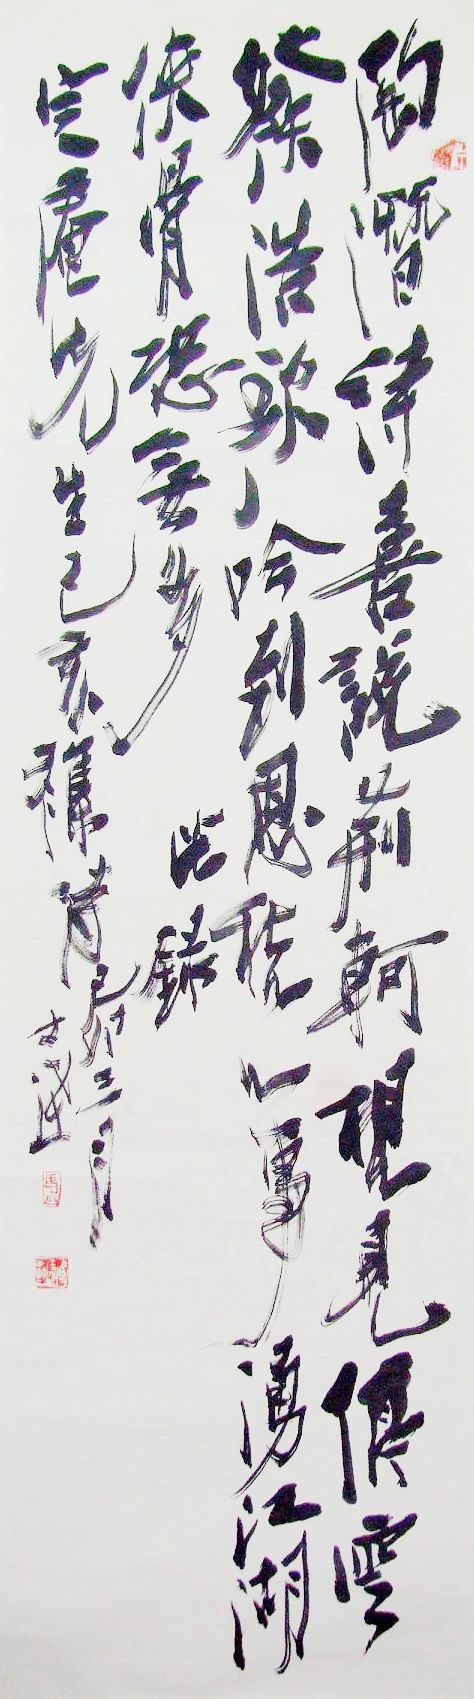 陶潛詩喜說荊軻想見停雲
發浩歌吟到恩仇心事湧江湖
俠骨恐無多 錄
定庵先生己亥雜詩己卯三月